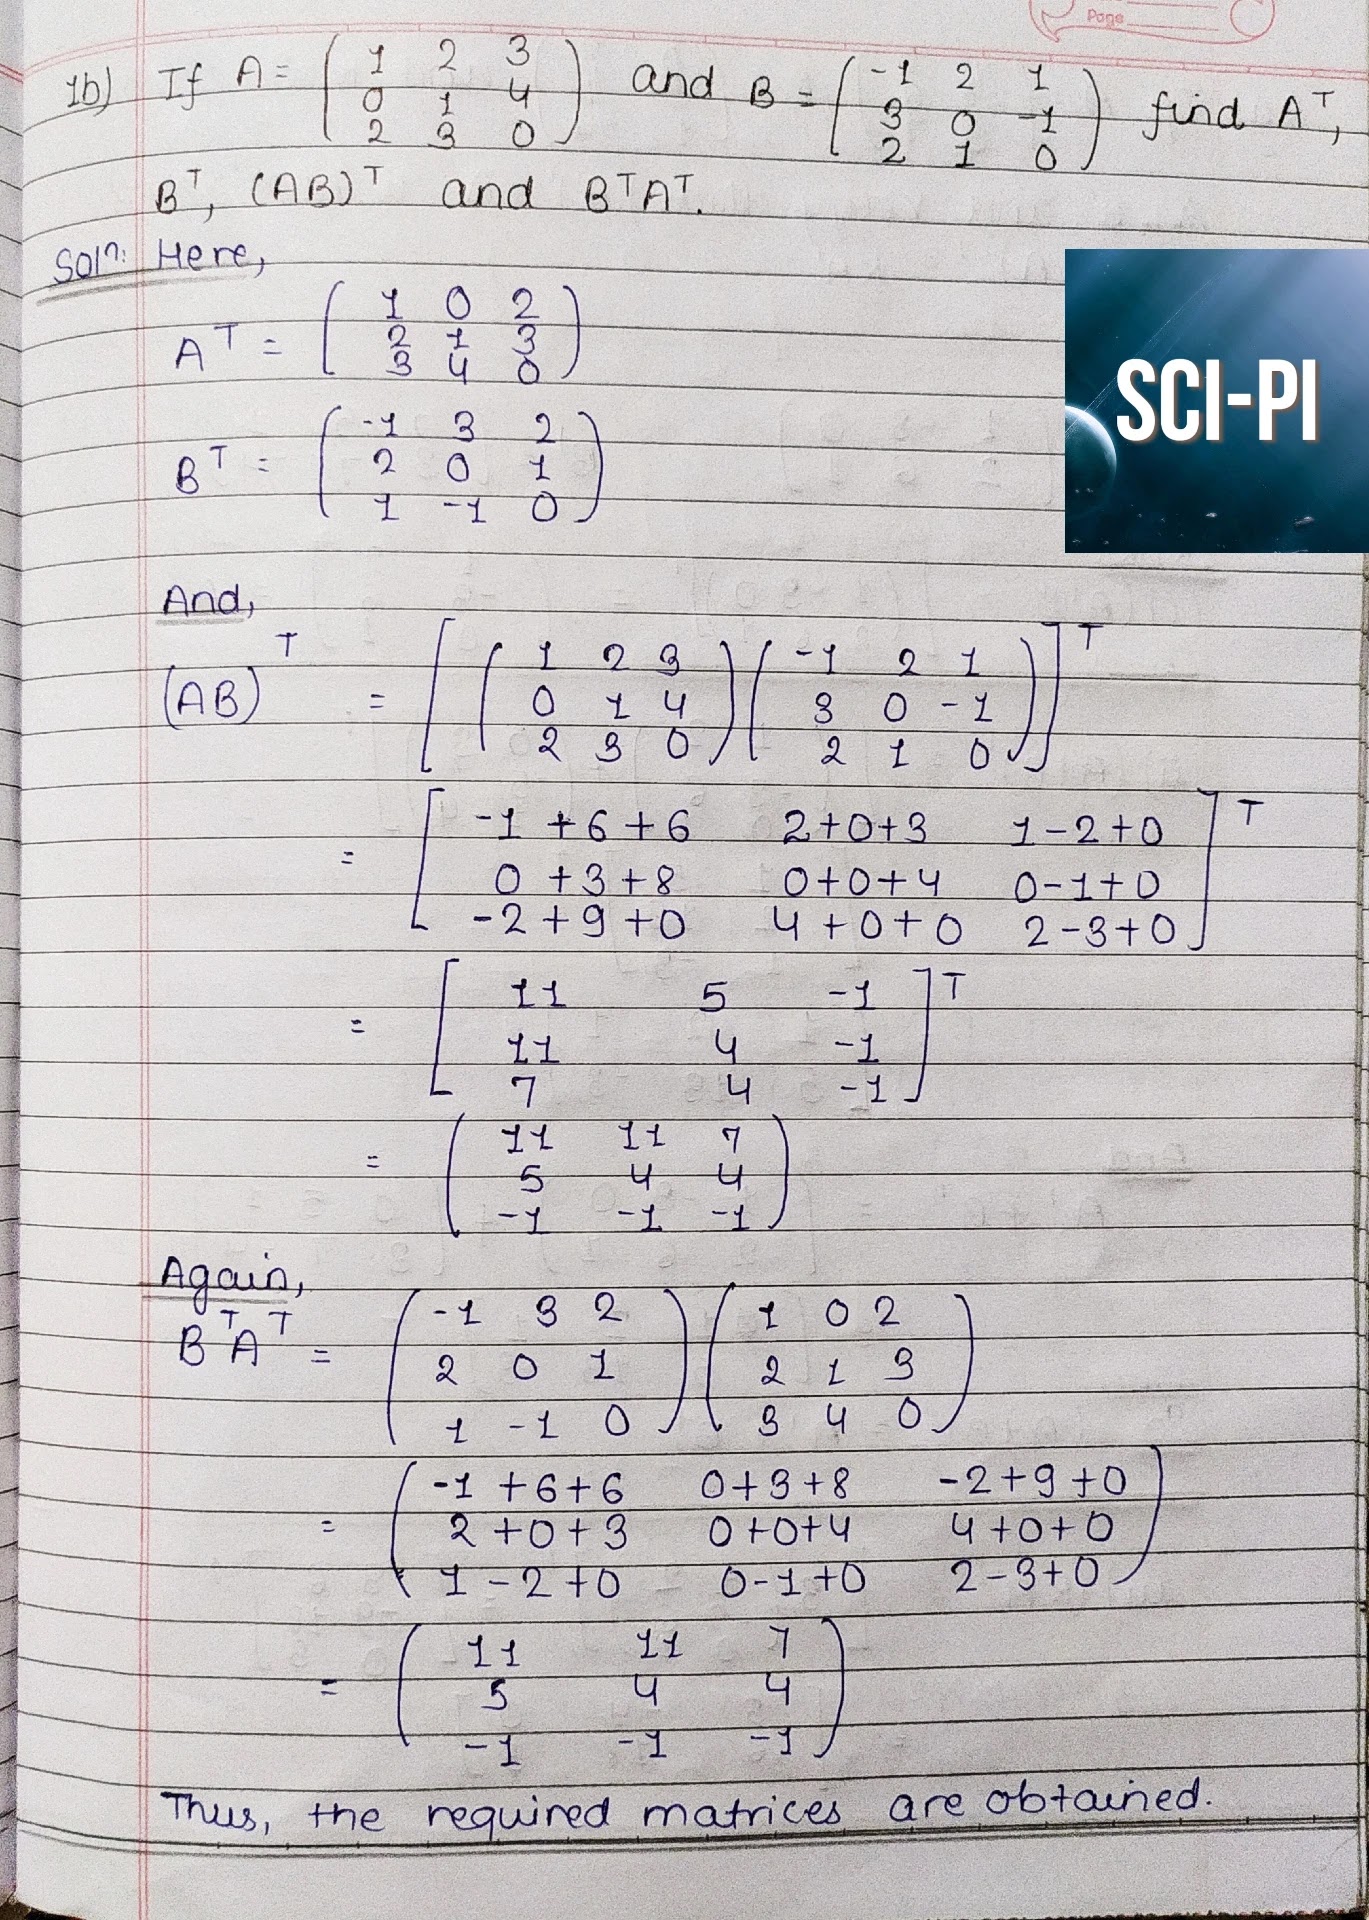 Page
1b) If A = ( 1 2 3 and B = ( -1 2 1 find Aᵀ,
0 1 4 3 0 -1
2 3 0 ) 2 1 0 )
Bᵀ, (AB)ᵀ and BᵀAᵀ.
Solⁿ: Here,
SCI-PI
Aᵀ = ( 1 0 2
2 1 3
3 4 0 )
Bᵀ = ( -1 3 2
2 0 1
1 -1 0 )
And,
(AB)ᵀ = [ ( 1 2 3 ) ( -1 2 1 ) ]ᵀ
0 1 4 3 0 -1
2 3 0 2 1 0
= [ -1 + 6 + 6 2+0+3 1-2+0 ]ᵀ
0 + 3 + 8 0+0+4 0-1+0
-2 + 9 + 0 4+0+0 2-3+0
= [ 11 5 -1 ]ᵀ
11 4 -1
7 4 -1
= ( 11 11 7
5 4 4
-1 -1 -1 )
Again,
BᵀAᵀ = ( -1 3 2 ) ( 1 0 2 )
2 0 1 2 1 3
1 -1 0 3 4 0
= ( -1 +6+6 0+3+8 -2+9+0
2+0+3 0+0+4 4+0+0
1-2+0 0-1+0 2-3+0 )
= ( 11 11 7
5 4 4
-1 -1 -1 )
Thus, the required matrices are obtained.